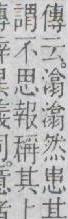 傳云。潝潝然患其
謂不思報稱其上